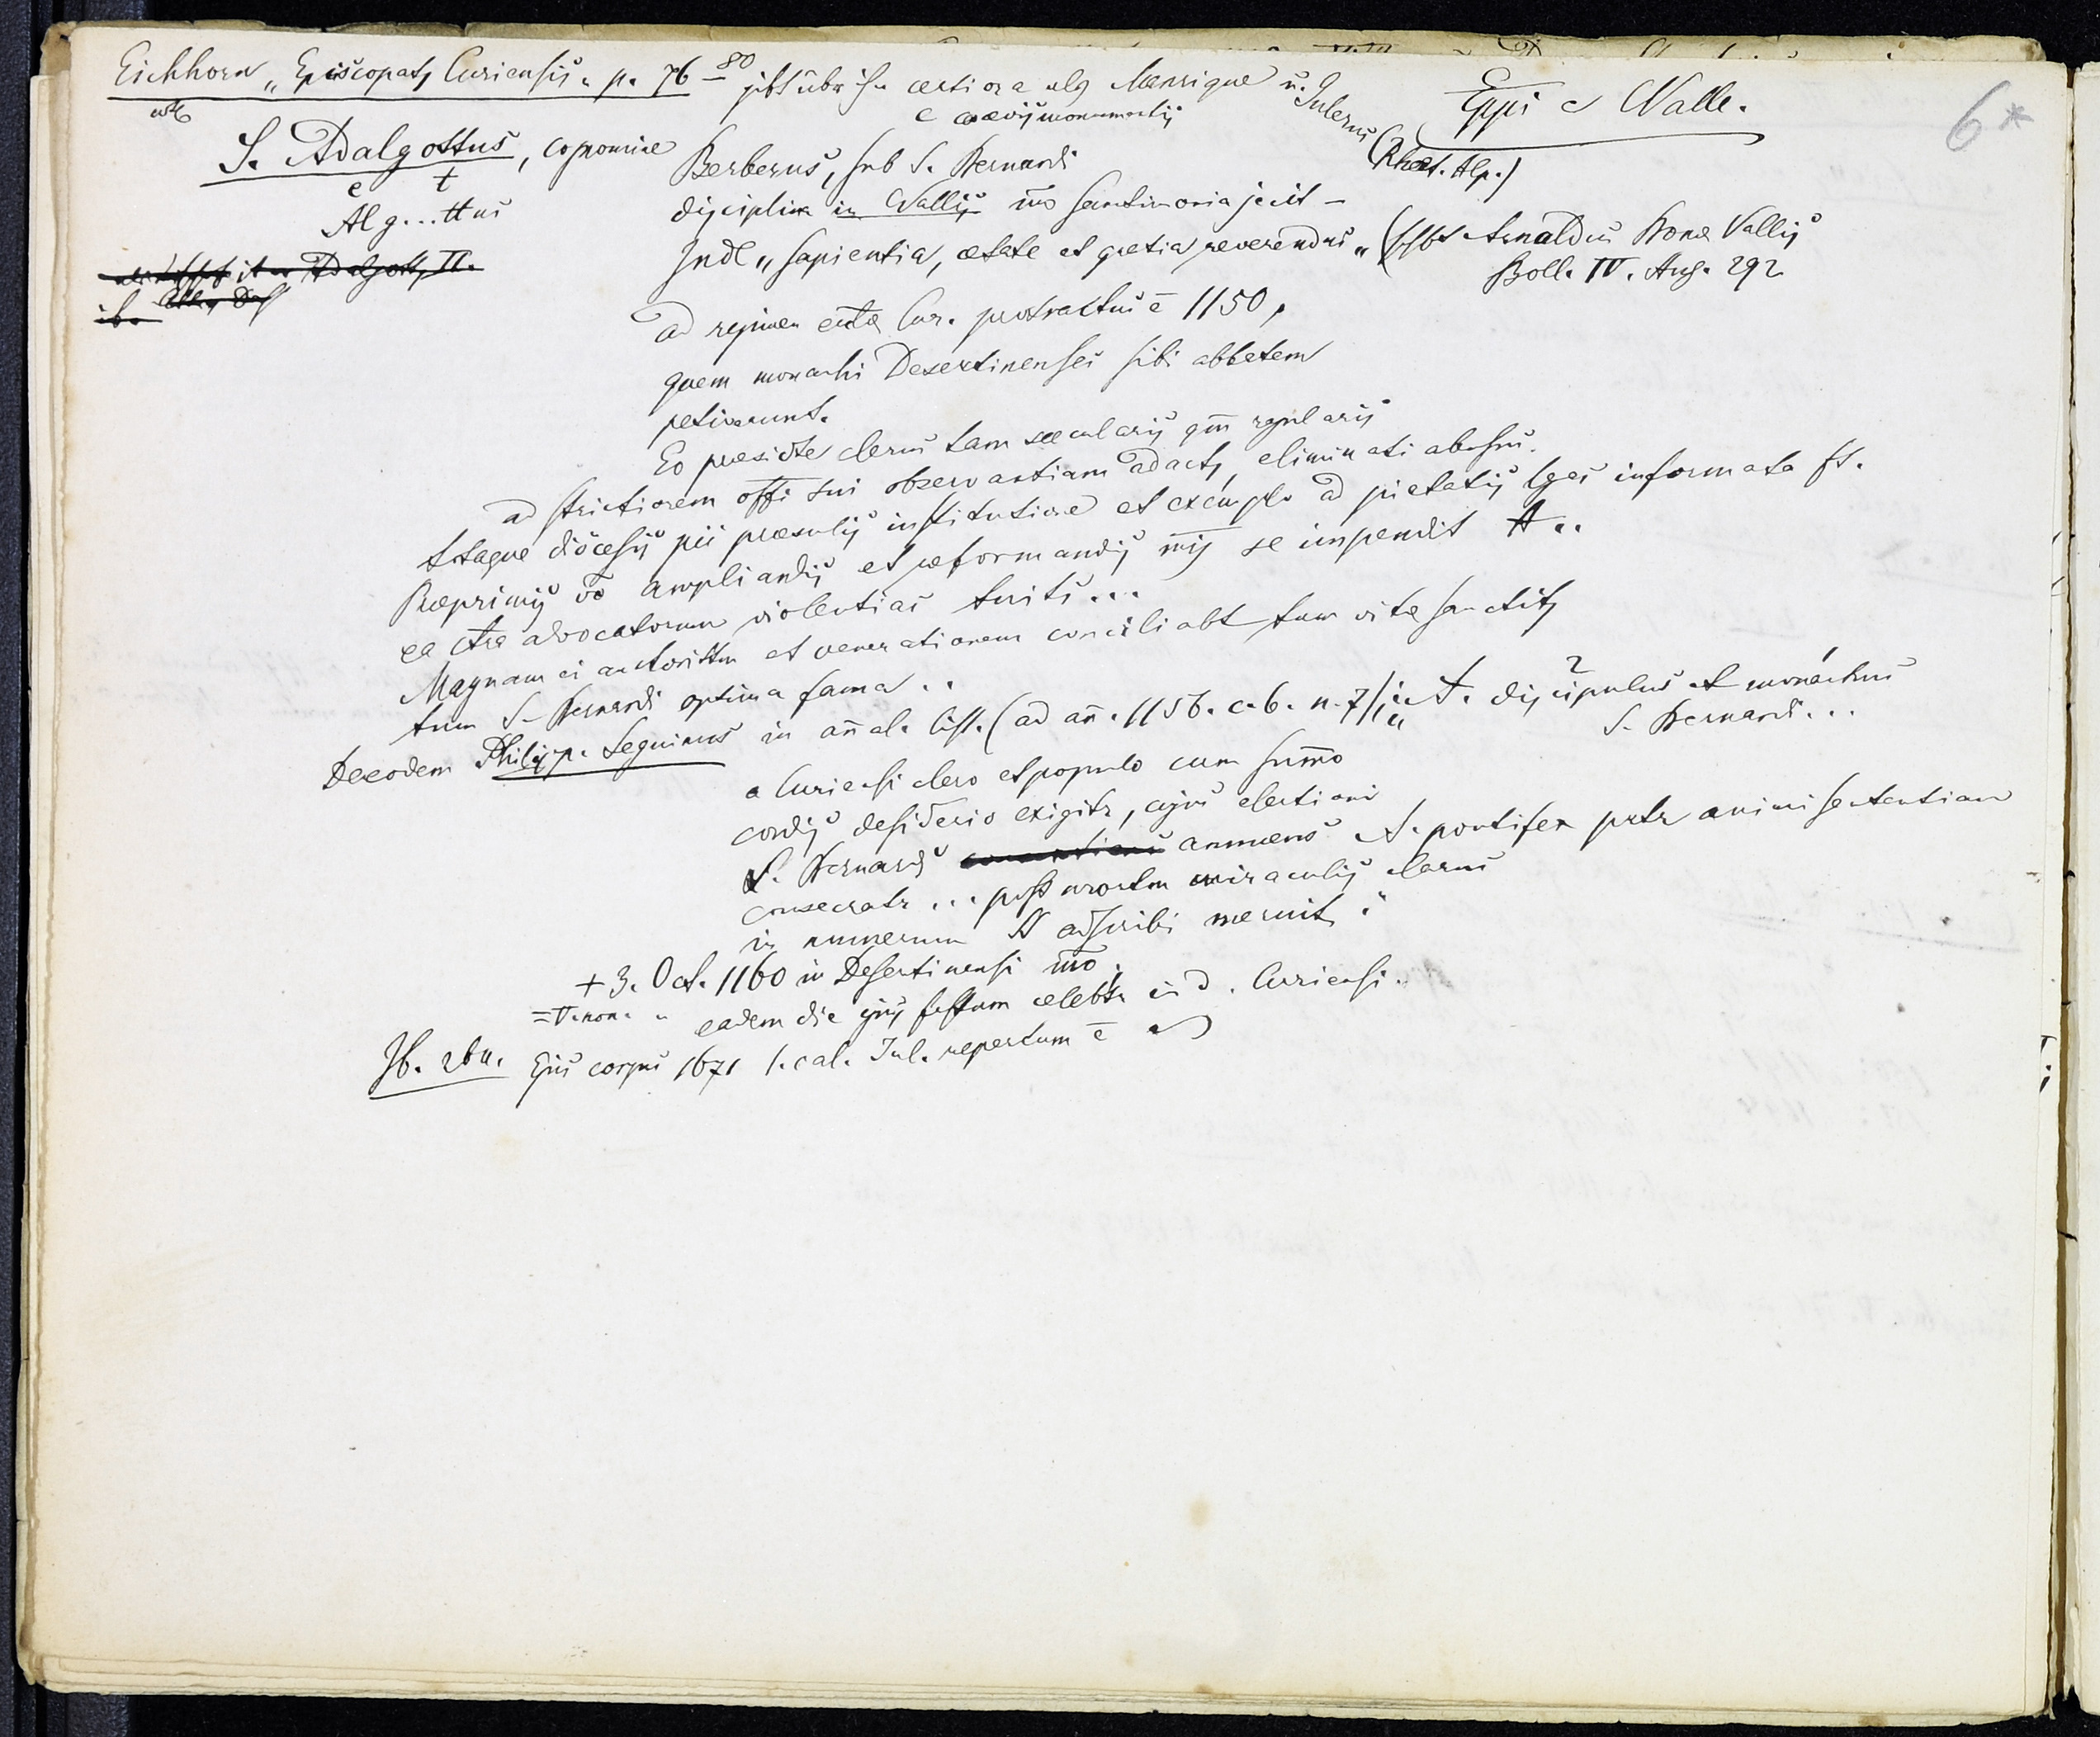 Eichhorn „Episcopat, Curiensis“ p. 76–80 gibt über ihn certiora als Manrique u.
e coaevis monumentis
Eppi e Valle.
6*
S. Adalgottus, cognomine
Berberus, sub S. Bernardi
(Rhaet. Alp.)
e t
Alg...ttus
disciplina in Vallis mo sanctimonia jecit –
Adalgott, II.
„sapientia, aetate et gratia reverendus“ (schbt Arnaldus Bonae Vallis
Boll. IV. Aug. 292
ad regimen Cur. protractus ē 1150,
quem monachi Desertinenses sibi abbatem
petiverunt.
Eo praeside clerus tam saecularis qm regularis
ad strictiorem offi sui observantiam adact, eliminati abusus.
totaque diöcesis pii praesulis institutione et exemplo ad pietatis lges informata st.
Reprimis vo ampliandis et reformandis se impendit A..
ea ctra advocatorum violentias tuits...
Magnam ei auctorittm et venerationem conciliabt tum vitae sanctit,
tum S. Bernardi optima fama..
De eodem Philipp. Seguinus in annal. Cist. (ad an. 1156. c. 6. n. 7): „A. discipulus et monachus
S. Bernardi...
a Curiensi clero et populo cum summo
cordis desiderio exigitr, cujus electioni
S. Bernards annuens A. pontifex pretr animi sententiam
consecratr ... post mortem miraculis clarus
in numerum SS adscribi meruit.“
+ 3. Oct. 1160 in Desertinensi mo.
= V. non. „ eadem die ejus festum celebtr in d. Curiensi.
Ejus corpus 1671 1. cal. Jul. repertum ē